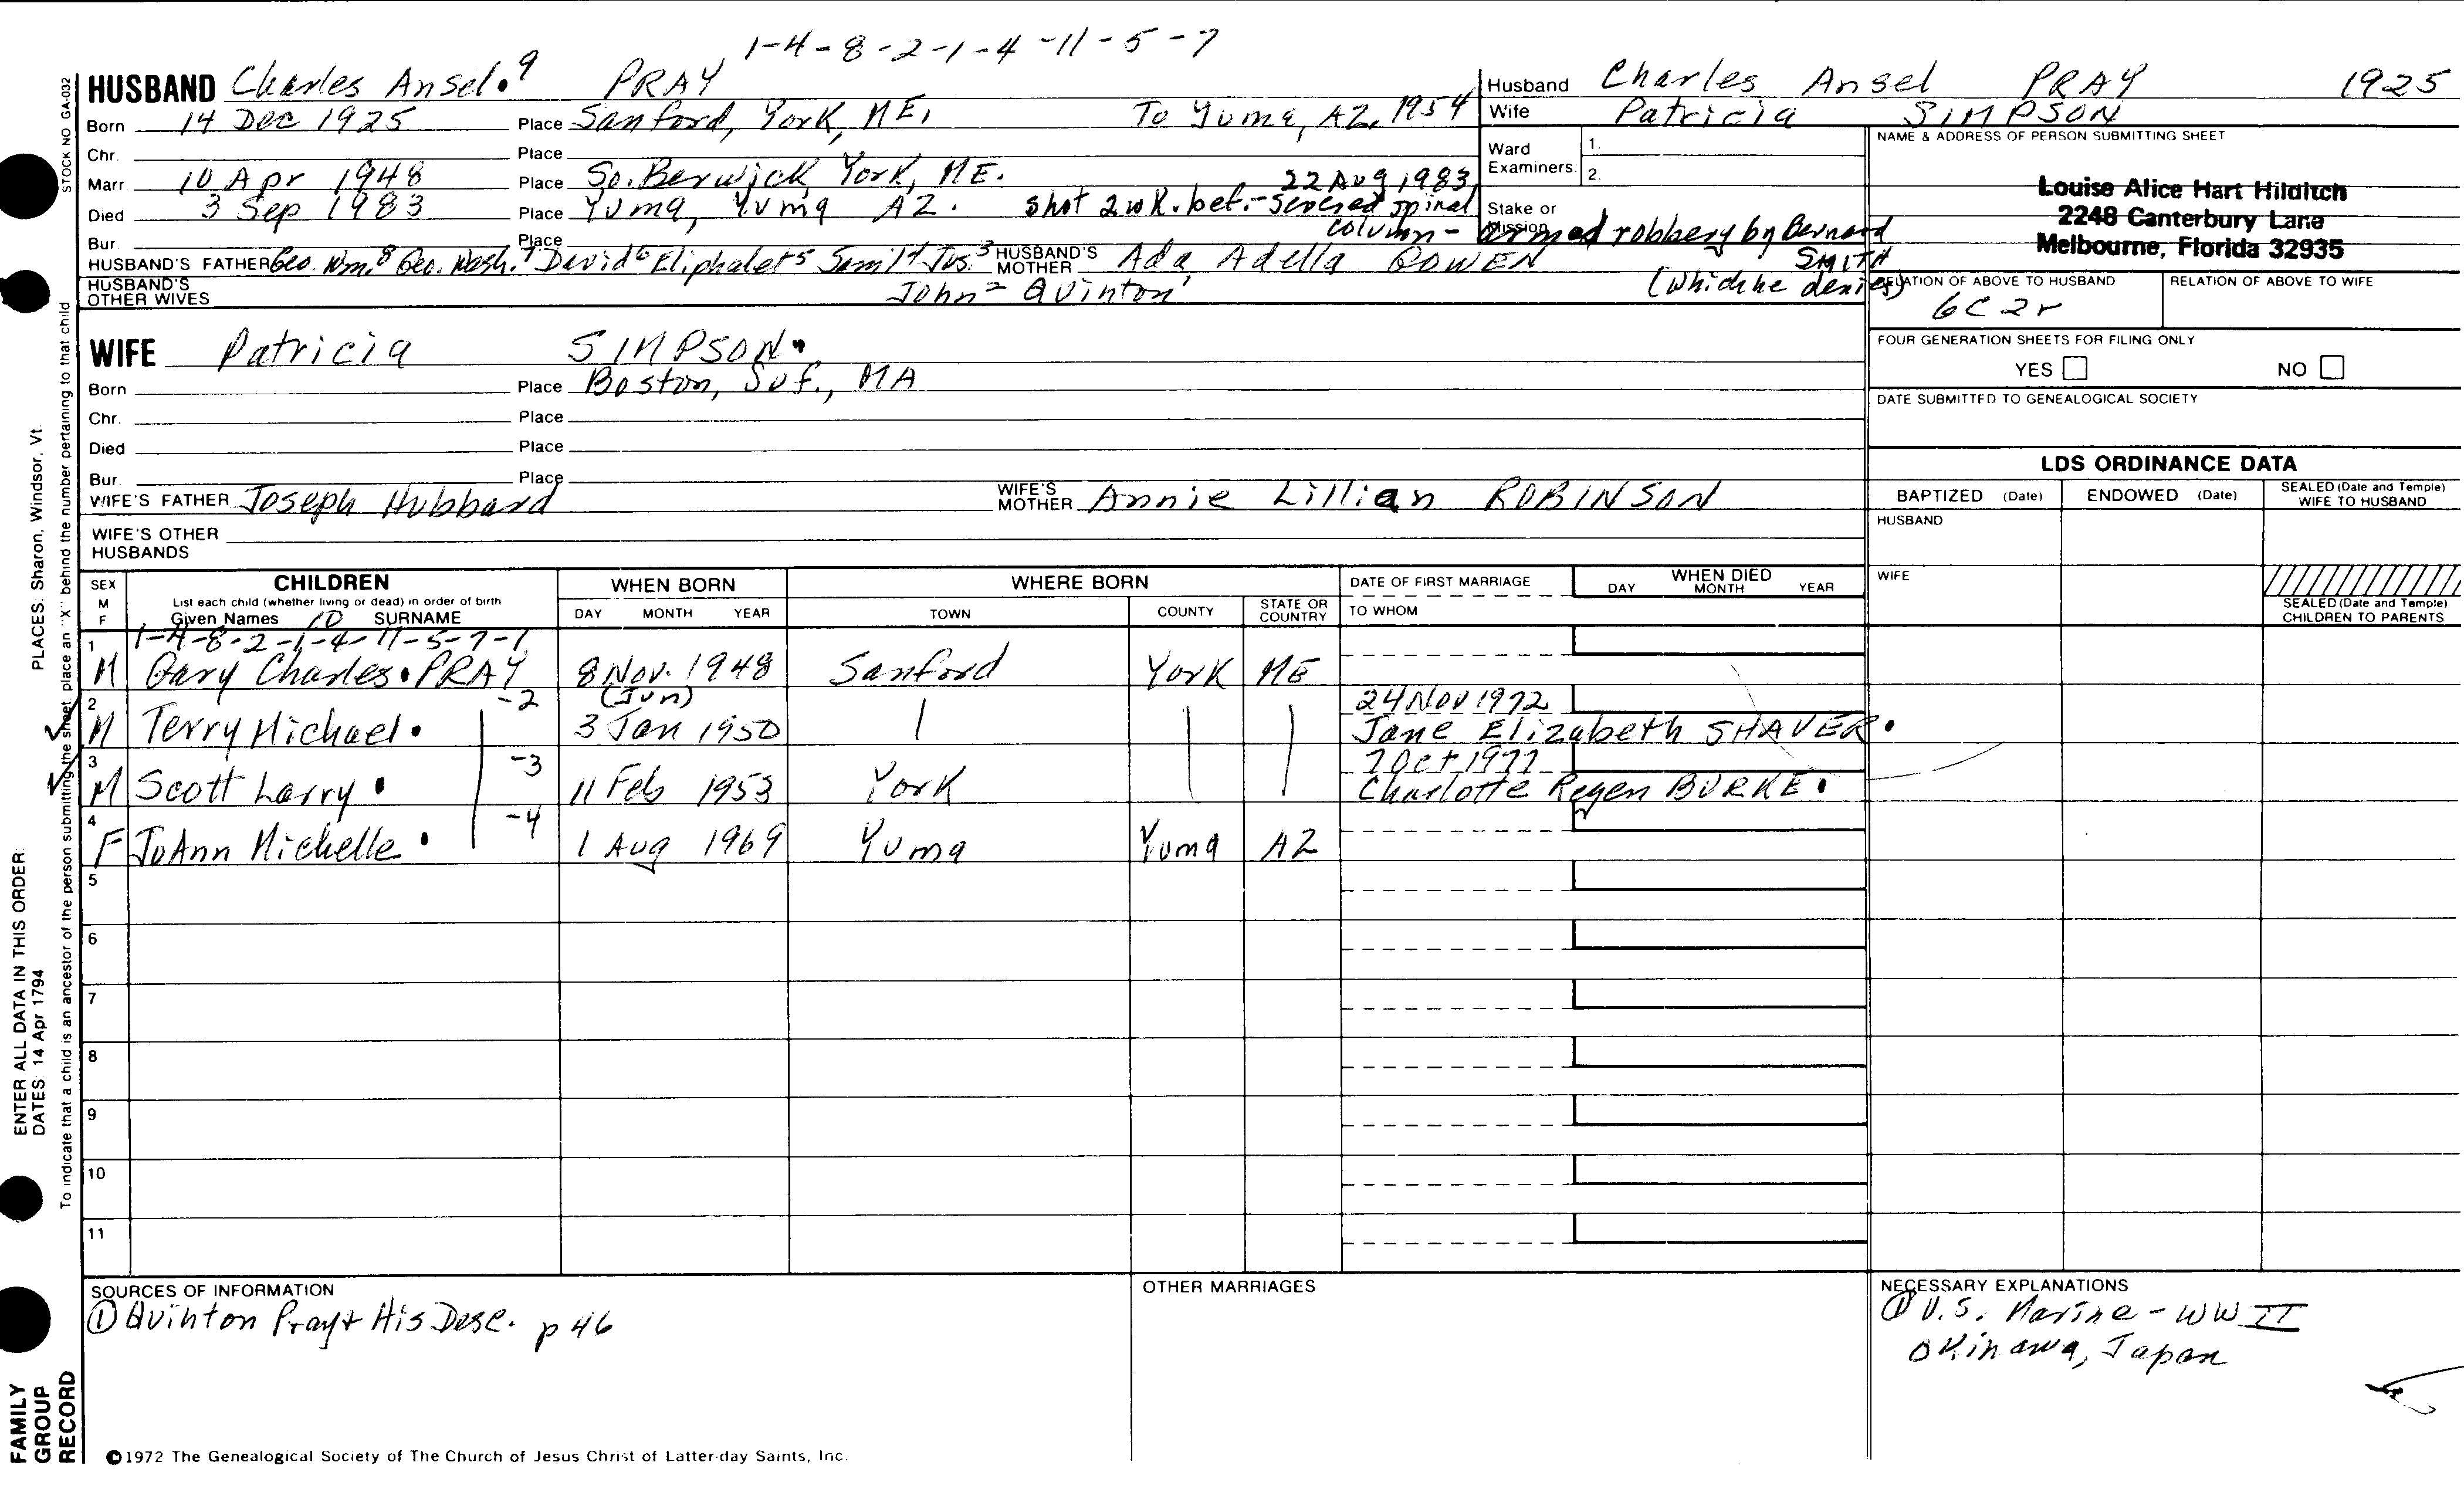 1-4-8-2-1-4-11-5-7
HUSBAND Charles Ansel.9 PRAY
Born 14 Dec 1925 Place Sanford, York, ME, To Yuma, AZ, 1954
Chr. Place
Marr. 10 Apr 1948 Place So. Berwick York, ME. 22 Aug 1983
Died 3 Sep 1983 Place Yuma, Yuma AZ. Shot 2 wk. bef.- severed spinal
Bur. Place column - armed robbery by Bernard
HUSBAND'S FATHER Geo. Wm.8 Geo. Wash.7 David6 Eliphalet5 Saml4 Jos.3 HUSBAND'S MOTHER Ada Adella BOWEN SMITH
HUSBAND'S OTHER WIVES John2 Quinton1 (Which he denies)
Husband Charles Ansel PRAY 1925
Wife Patricia SIMPSON
Ward Examiners: 1.
2.
Stake or Mission
NAME & ADDRESS OF PERSON SUBMITTING SHEET
Louise Alice Hart Hilditch
2248 Canterbury Lane
Melbourne, Florida 32935
RELATION OF ABOVE TO HUSBAND RELATION OF ABOVE TO WIFE
6C 2r
WIFE Patricia SIMPSON.
Born Place Boston, Suf., MA
Chr. Place
Died Place
Bur. Place
WIFE'S FATHER Joseph Hubbard WIFE'S MOTHER Annie Lillian ROBINSON
WIFE'S OTHER HUSBANDS
FOUR GENERATION SHEETS FOR FILING ONLY
YES NO
DATE SUBMITTED TO GENEALOGICAL SOCIETY
LDS ORDINANCE DATA
BAPTIZED (Date) ENDOWED (Date) SEALED (Date and Temple) WIFE TO HUSBAND
HUSBAND
WIFE
SEALED (Date and Temple) CHILDREN TO PARENTS
SEX M F CHILDREN WHEN BORN WHERE BORN DATE OF FIRST MARRIAGE WHEN DIED
List each child (whether living or dead) in order of birth DAY MONTH YEAR TOWN COUNTY STATE OR COUNTRY TO WHOM DAY MONTH YEAR
Given Names 10 SURNAME
1-4-8-2-1-4-11-5-7-1
1 M Gary Charles. PRAY 8 Nov. 1948 Sanford York ME
-2 (Jun) 24 Nov 1972
2 M Terry Michael. 3 Jan 1950 Jane Elizabeth SHAVER.
-3 7 Oct 1977
3 M Scott Larry. 11 Feb 1953 York Charlotte Regen BURKE.
-4
4 F JoAnn Michelle. 1 Aug 1969 Yuma Yuma AZ
5
6
7
8
9
10
11
SOURCES OF INFORMATION
① Quinton Pray & His Desc. p 46
OTHER MARRIAGES
NECESSARY EXPLANATIONS
① U.S. Marine - WW II
Okinawa, Japan
©1972 The Genealogical Society of The Church of Jesus Christ of Latter-day Saints, Inc.
STOCK NO GA-032
To indicate that a child is an ancestor of the person submitting the sheet, place an "X" behind the number pertaining to that child
ENTER ALL DATA IN THIS ORDER: PLACES: Sharon, Windsor, Vt.
DATES: 14 Apr 1794
FAMILY
GROUP
RECORD